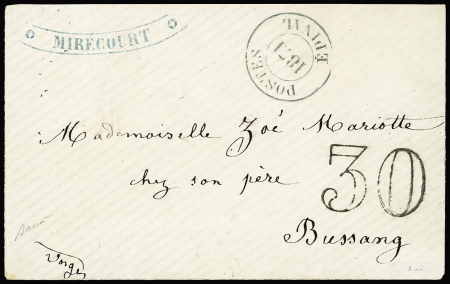 MIRECOURT
EPINAL
1871
POSTES
Mademoiselle Zoé Mariotte
chez son père
30
Bussang
Vosges